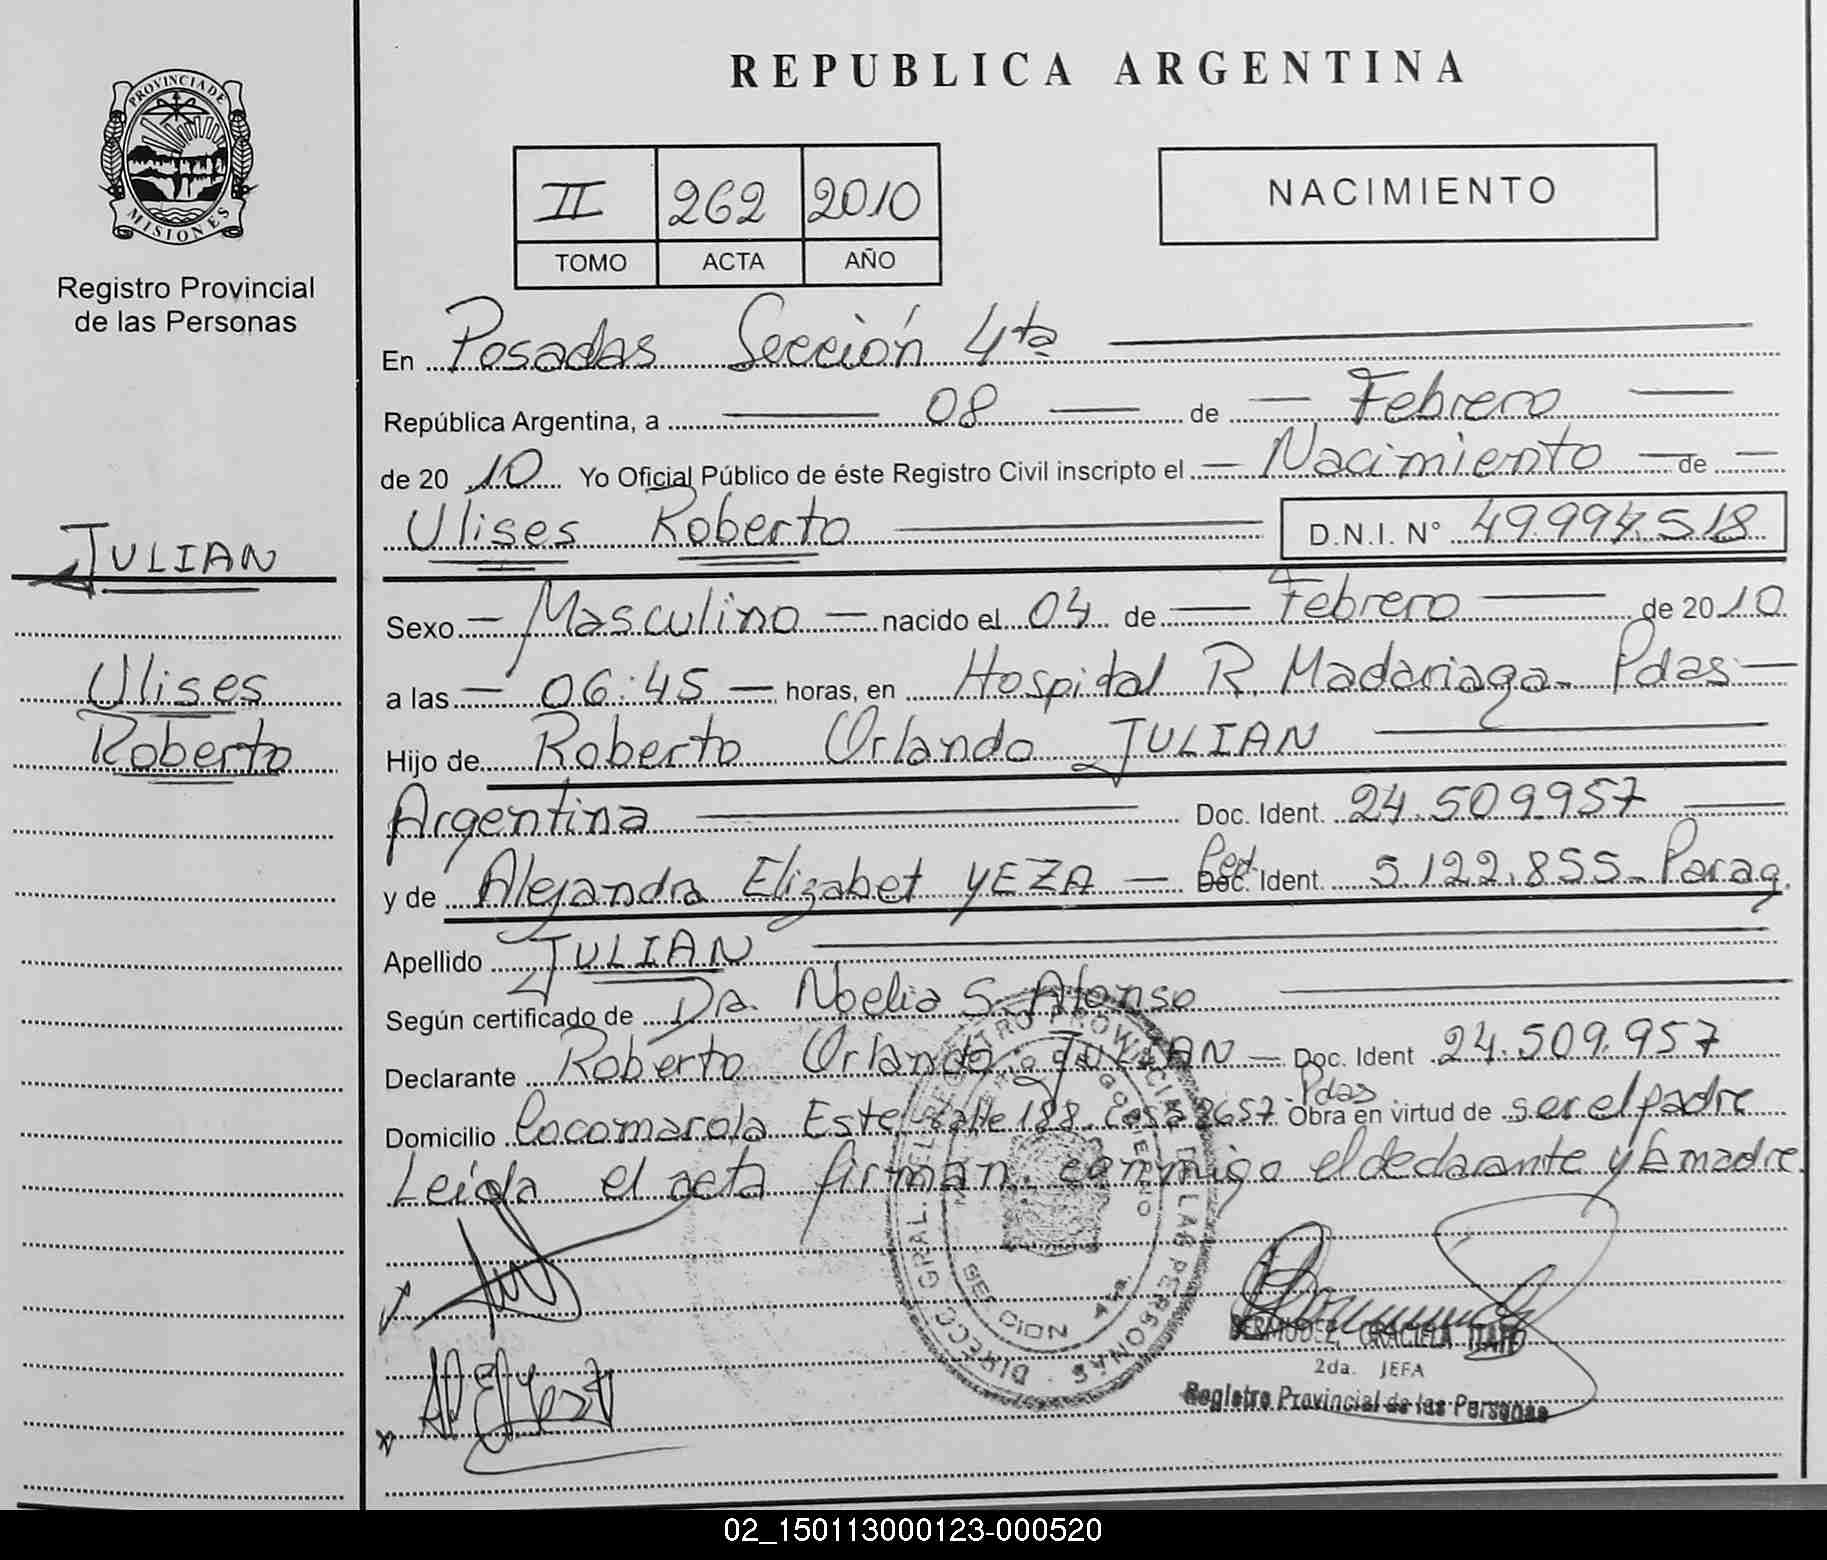 REPUBLICA ARGENTINA
PROVINCIA DE MISIONES
Registro Provincial
de las Personas
II 262 2010
TOMO ACTA AÑO
NACIMIENTO
En Posadas Sección 4ta
República Argentina, a 08 de Febrero
de 2010 Yo Oficial Público de éste Registro Civil inscripto el Nacimiento de
Ulises Roberto D.N.I. N° 49.994.518
JULIAN
Ulises
Roberto
Sexo Masculino nacido el 04 de Febrero de 2010
a las 06:45 horas, en Hospital R. Madariaga - Pdas
Hijo de Roberto Orlando JULIAN
Argentina Doc. Ident. 24.509.957
y de Alejandra Elizabet YEZA Ced. Doc. Ident. 5.122.855 - Parag.
Apellido JULIAN
Según certificado de Dra. Noelia S. Afonso
Declarante Roberto Orlando JULIAN Doc. Ident 24.509.957
Domicilio Cocomarola Este, calle 188. Casa 2657. Pdas Obra en virtud de ser el padre
Leída el acta firman conmigo el declarante y la madre.
DIRECC. GRAL. DEL REGISTRO PROVINCIAL DE LAS PERSONAS
SECCION 4ta.
BERMUDEZ, GRACIELA ITATI
2da. JEFA
Registro Provincial de las Personas
02_150113000123-000520